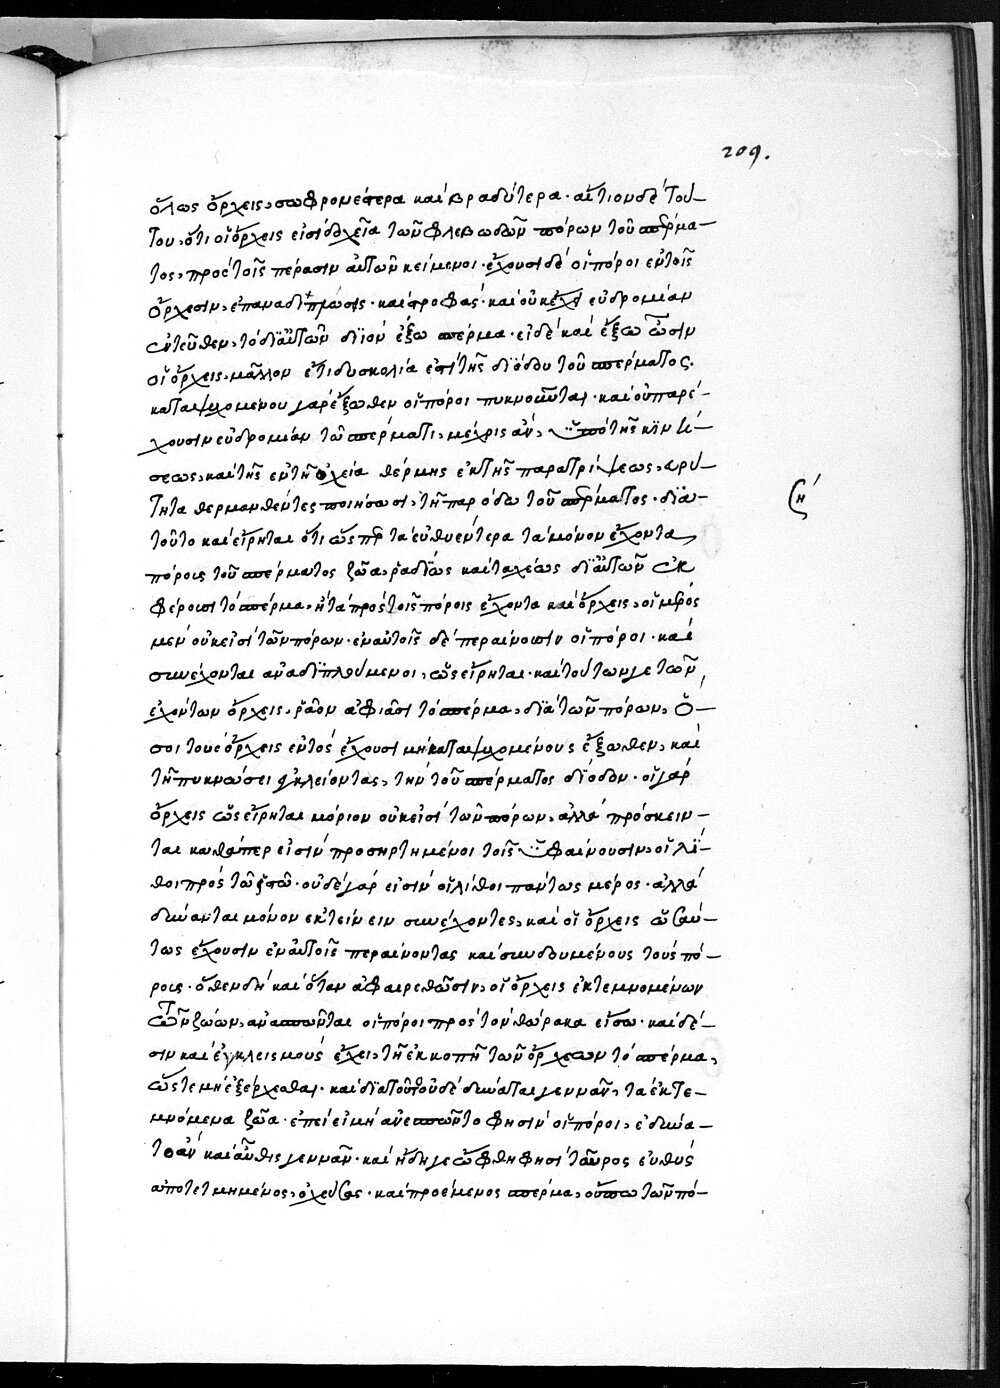 209.
ὅλως ὄρχεις, σωφρονέστερα καὶ βραδύτερα· αἴτιον δὲ τού-
του, ὅτι οἱ ὄρχεις εἰσὶ δοχεῖα τῶν φλεβωδῶν πόρων τοῦ σπέρμα-
τος, πρὸς τοῖς πέρασιν αὐτῶν κείμενοι· ἔχουσι δὲ οἱ πόροι ἐν τοῖς
ὄρχεσιν, ἐπαναδιπλώσεις· καὶ στροφάς· καὶ οὐκ ἔχει εὐδρομίαν
ἐντεῦθεν, τὸ δι' αὐτῶν διϊὸν ἔξω σπέρμα· εἰ δὲ καὶ ἔξω ὦσιν
οἱ ὄρχεις, μᾶλλον ἔτι δυσκολία ἐστὶ τῆς διόδου τοῦ σπέρματος.
καταψυχομένου γὰρ ἔξωθεν οἱ πόροι πυκνοῦνται· καὶ οὐ παρέ-
χουσιν εὐδρομίαν τῶ σπέρματι, μέχρις ἂν, ὑπὸ τῆς κινή-
σεως, καὶ τῆς ἐν τῇ ὀχεία θέρμης ἐκ τῆς παρατρίψεως,
τητα θερμανθέντες ποιήσωσι, τῇ παρόδω τοῦ σπέρματος· διὰ
τοῦτο καὶ εἴρηται ὅτι ὥσπερ τὰ εὐθυεντερα τὰ μόνον ἔχοντα
πόρους τοῦ σπέρματος ζῶα, ῥαδίως καὶ ταχέως δι' αὐτῶν ἐκ
φέρουσι τὸ σπέρμα, ἢ τὰ πρὸς τοῖς πόροις ἔχοντα καὶ ὄρχεις, οἳ μέρος
μὲν οὐκ εἰσὶ τῶν πόρων· ἐν αὐτοῖς δὲ περαίνουσιν οἱ πόροι· καὶ
συνέχονται ἀναδιπλούμενοι, ὡς εἴρηται· καὶ τούτων γε τῶν
ἐχόντων ὄρχεις, ῥᾶον ἀφιᾶσι τὸ σπέρμα, διὰ τῶν πόρων, ὅ-
σοι τοὺς ὄρχεις ἐντὸς ἔχουσι μὴ καταψυχομένους ἔξωθεν, καὶ
τῇ πυκνώσει συγκλείοντας, τὴν τοῦ σπέρματος δίοδον· οἱ γὰρ
ὄρχεις ὡς εἴρηται μόριον οὐκ εἰσὶ τῶν πόρων, ἀλλὰ πρόσκειν-
ται καθάπερ εἰσὶν προσηρτημένοι τοῖς ὑφαίνουσιν, οἱ λί-
θοι πρὸς τῶ ἱστῶ· οὐδὲ γάρ εἰσιν οἱ λίθοι παντως μέρος· ἀλλὰ
δύνανται μόνον ἐκτείνειν συνέχοντες, καὶ οἱ ὄρχεις ὡσαύ-
τως ἔχουσιν ἐν αὐτοῖς περαίνοντας καὶ συνδουμένους τοὺς πό-
ρους· ὅθεν δὴ καὶ ὅταν ἀφαιρεθῶσιν, οἱ ὄρχεις ἐκτεμνομένων
τῶν ζώων, ἀνασπῶνται οἱ πόροι πρὸς τὸν θώρακα εἴσω· καὶ δέ-
σιν καὶ ἐγκλεισμοὺς ἔχει, τῇ ἐκκοπῇ τῶν ὄρχεων τὸ σπέρμα,
ὥστε μὴ ἐξέρχεσθαι· καὶ διὰ τοῦτο οὐδὲ δύναται γεννᾶν, τὰ ἐκτε-
μνόμενα ζῶα· ἐπεὶ εἰ μὴ ἀνεσπῶντο φησὶν οἱ πόροι, ἐδύνα-
το ἂν καὶ αὖθις γεννᾶν· καὶ ἤδη γε ὤφθη φησὶ ταῦρος εὐθὺς
ἀποτετμημένος, ὀχεύσας· καὶ προέμενος σπέρμα, οὔπω τῶν πό-